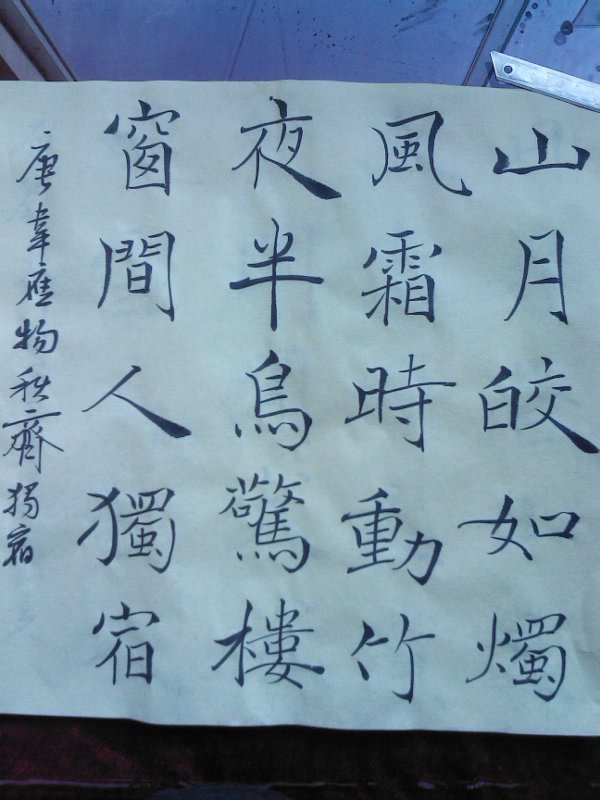 山月皎如燭
風霜時動竹
夜半鳥驚樓
窗間人獨宿
唐韋應物秋齋獨宿